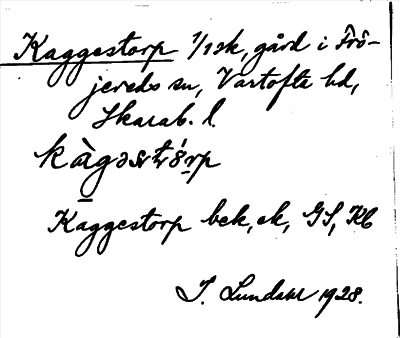 Kaggestorp 1/1 sk, gård i Frö-
jereds sn, Vartofta hd,
Skarab. l.
kàgəstró̱rp
Kaggestorp bek, ek, GS, Kb
I. Lundahl 1928.